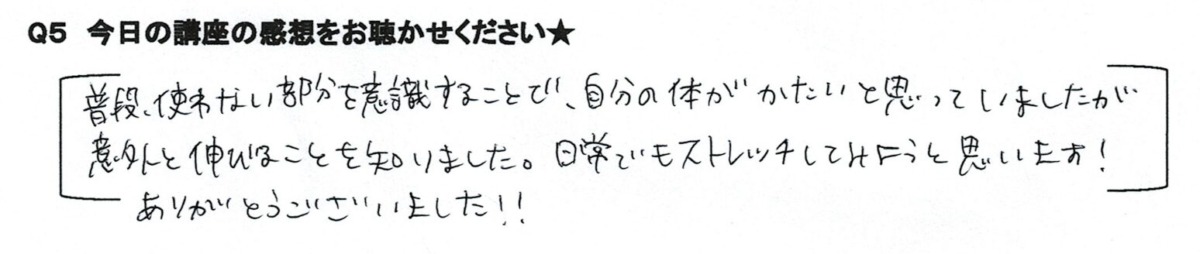 Q5 今日の講座の感想をお聴かせください★
普段、使わない部分を意識することで、自分の体がかたいと思っていましたが
意外と伸びることを知りました。日常でもストレッチしてみようと思います!
ありがとうございました!!